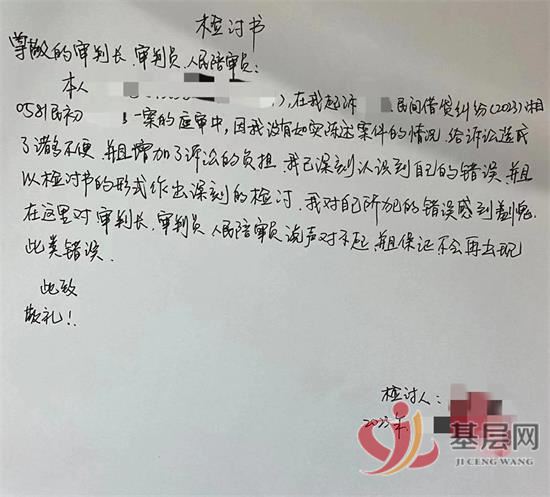 检讨书
尊敬的审判长、审判员、人民陪审员:
本人 ),在我起诉 民间借贷纠纷(2023)湘
0581民初 一案的庭审中,因我没有如实陈述案件的情况,给诉讼造成
了诸多不便,并且增加了诉讼的负担,我已深刻认识到自己的错误,并且
以检讨书的形式作出深刻的检讨,我对自己所犯的错误感到羞愧,
在这里对审判长、审判员、人民陪审员说声对不起,并且保证不会再出现
此类错误.
此致
敬礼!
检讨人:
2023年
基层网
JI CENG WANG